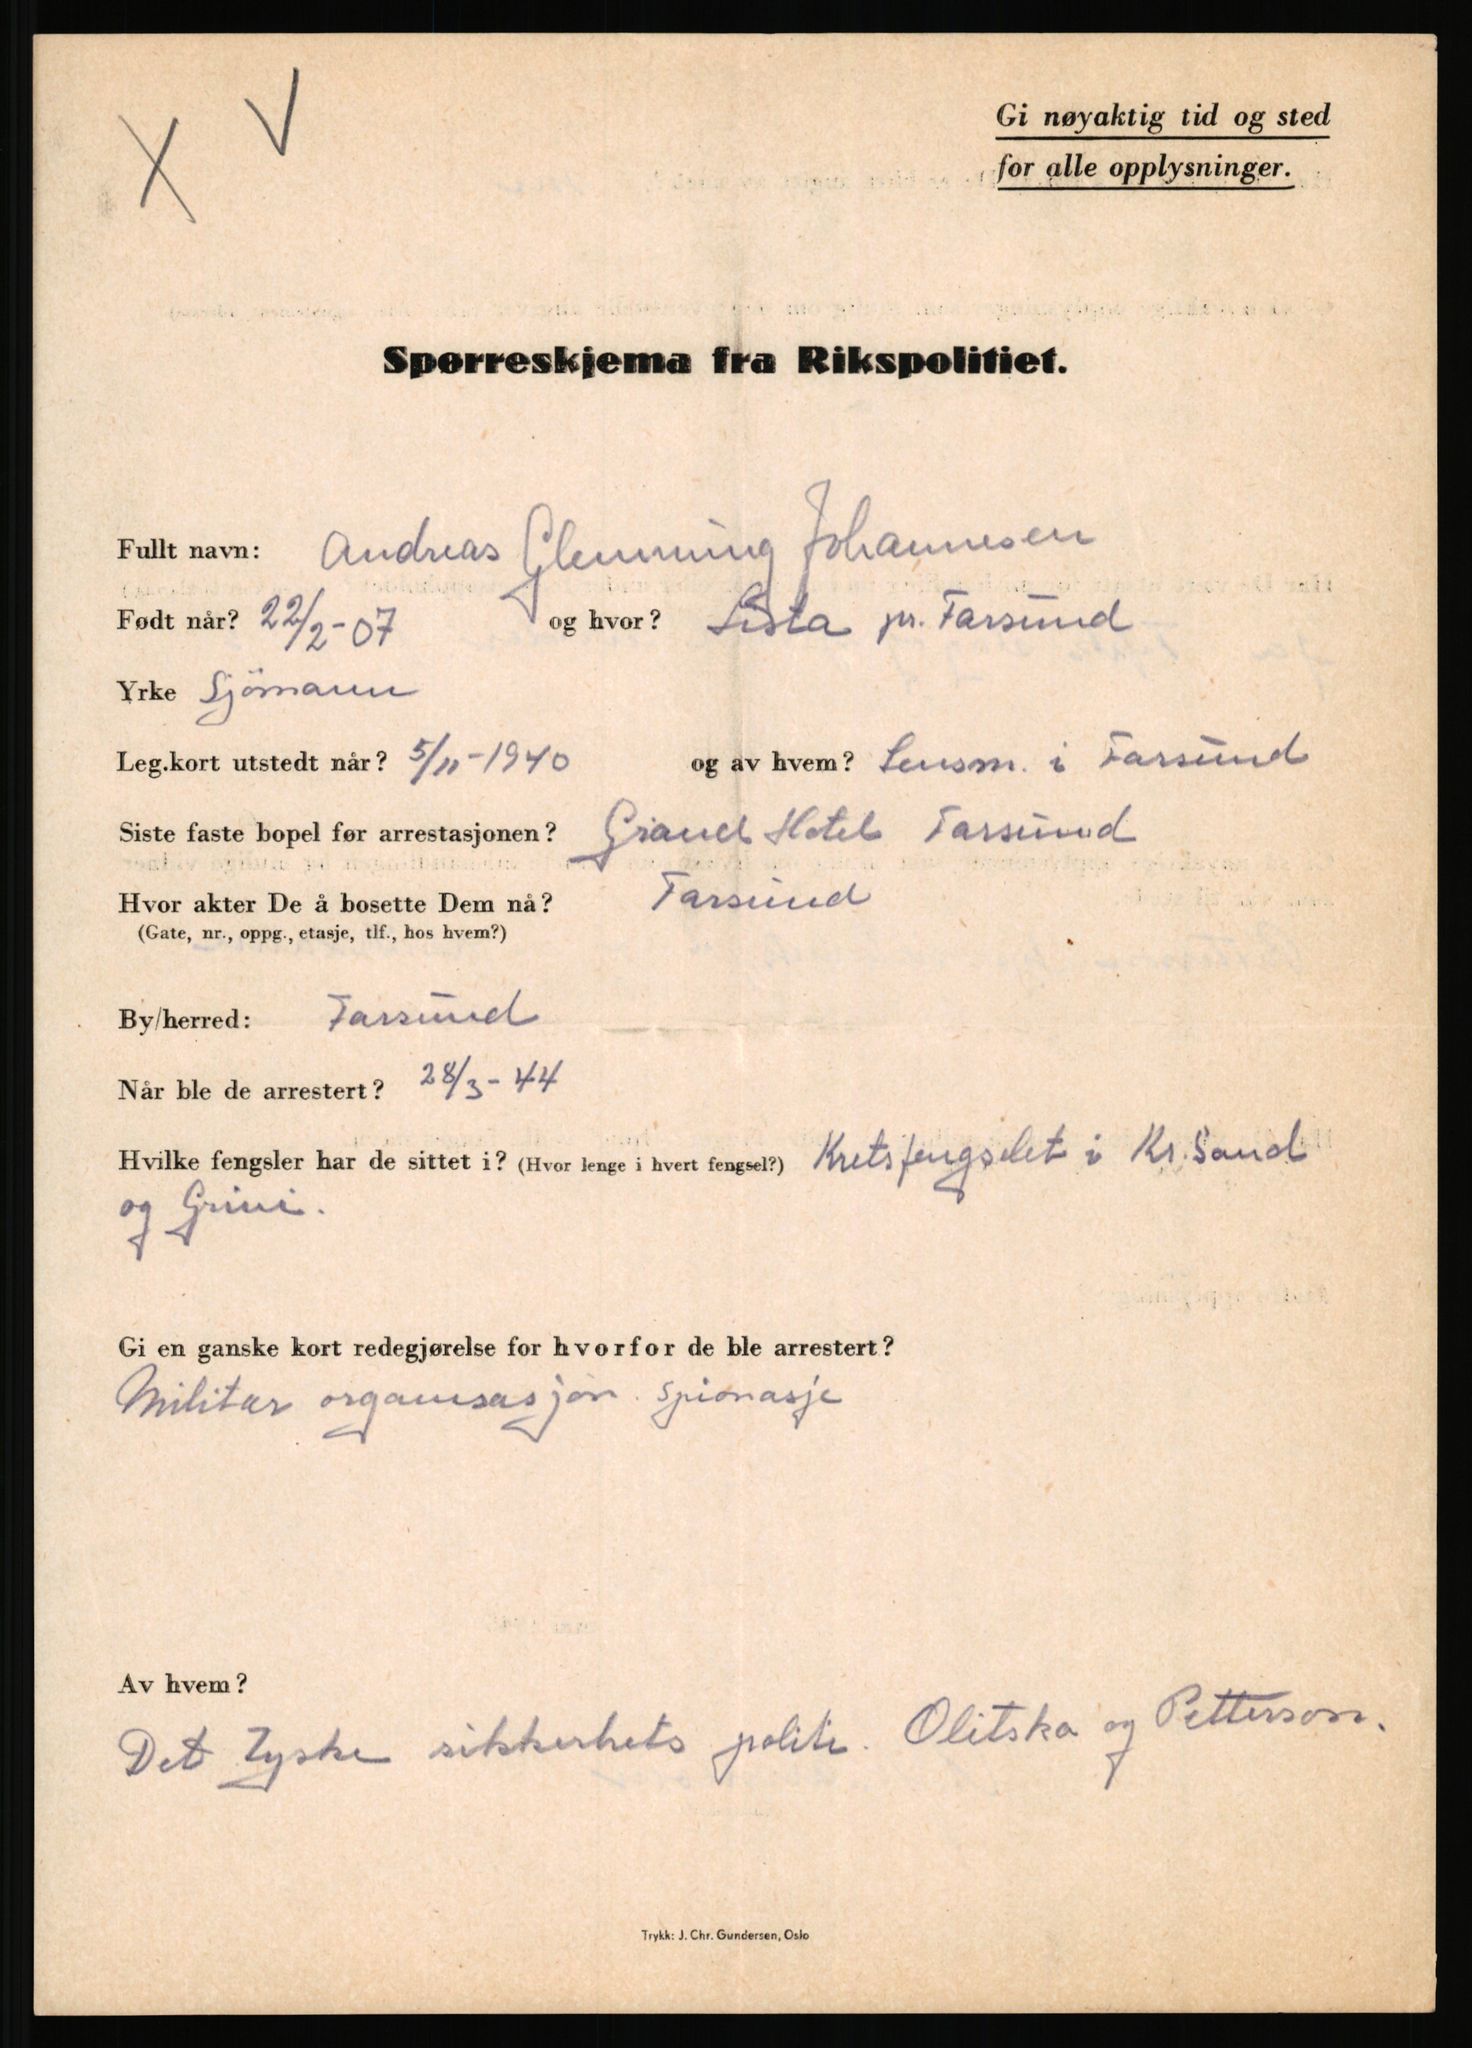 Gi nøyaktig tid og sted
for alle opplysninger.
Spørreskjema fra Rikspolitiet.
Fullt navn: Andreas Glemming Johannesen
Født når? 22/2-07 og hvor? Lista pr. Farsund
Yrke Sjömann
Leg.kort utstedt når? 5/11-1940 og av hvem? Lensm. i Farsund
Siste faste bopel før arrestasjonen? Grand Hotel Farsund
Hvor akter De å bosette Dem nå? Farsund
(Gate, nr., oppg., etasje, tlf., hos hvem?)
By/herred: Farsund
Når ble de arrestert? 28/3-44
Hvilke fengsler har de sittet i? (Hvor lenge i hvert fengsel?) Kretsfengslet i Kr. Sand
og Grini.
Gi en ganske kort redegjørelse for hvorfor de ble arrestert?
Militær organisasjon. Spionasje
Av hvem?
Det Tyske sikkerhets politi. Olitska og Petterson.
Trykk: J. Chr. Gundersen, Oslo